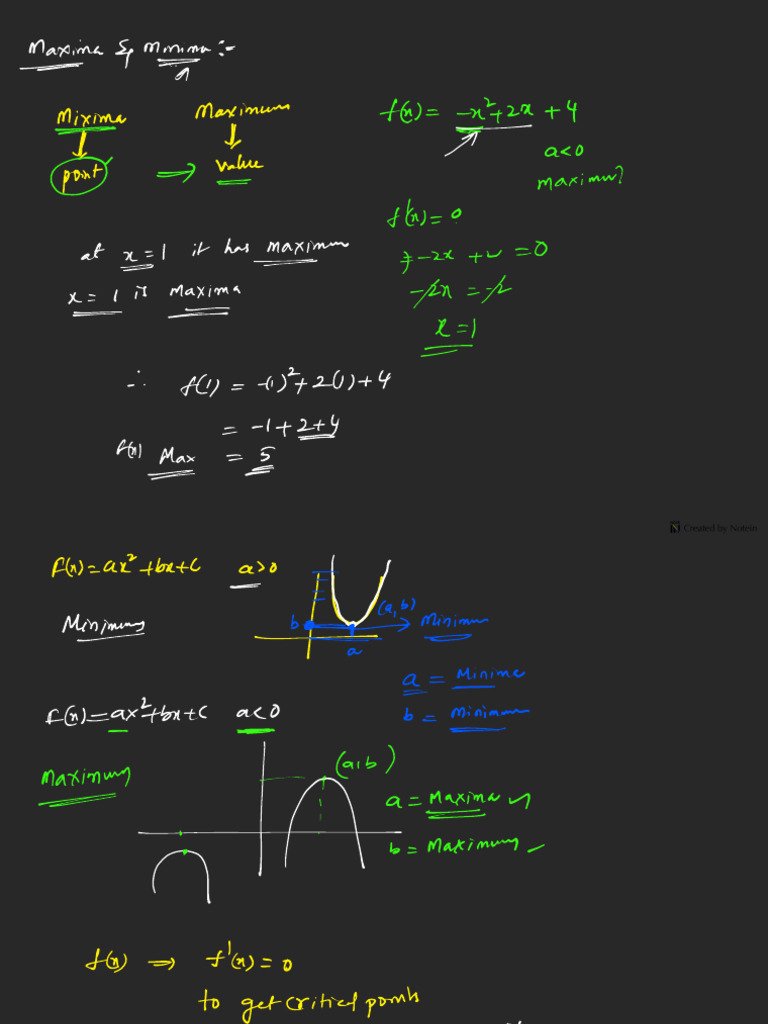 Maxima & Minima :-
Mixima Maximum
point → value
f(x) = -x²+2x + 4
a<0
maximum?
f'(x) = 0
⇒ -2x + 2 = 0
-2x = -2
x = 1
at x = 1 it has maximum
x = 1 is Maxima
∴ f(1) = -(1)²+2(1)+4
= -1 + 2+4
f(x) Max = 5
Created by Notein
f(x) = ax²+bx+c a>0
Minimum
b (a,b) → Minimum
a
a = Minima
b = Minimum
f(x) = ax²+bx+c a<0
Maximum
(a,b)
a = Maxima
b = Maximum
f(x) → f'(x) = 0
to get critical points